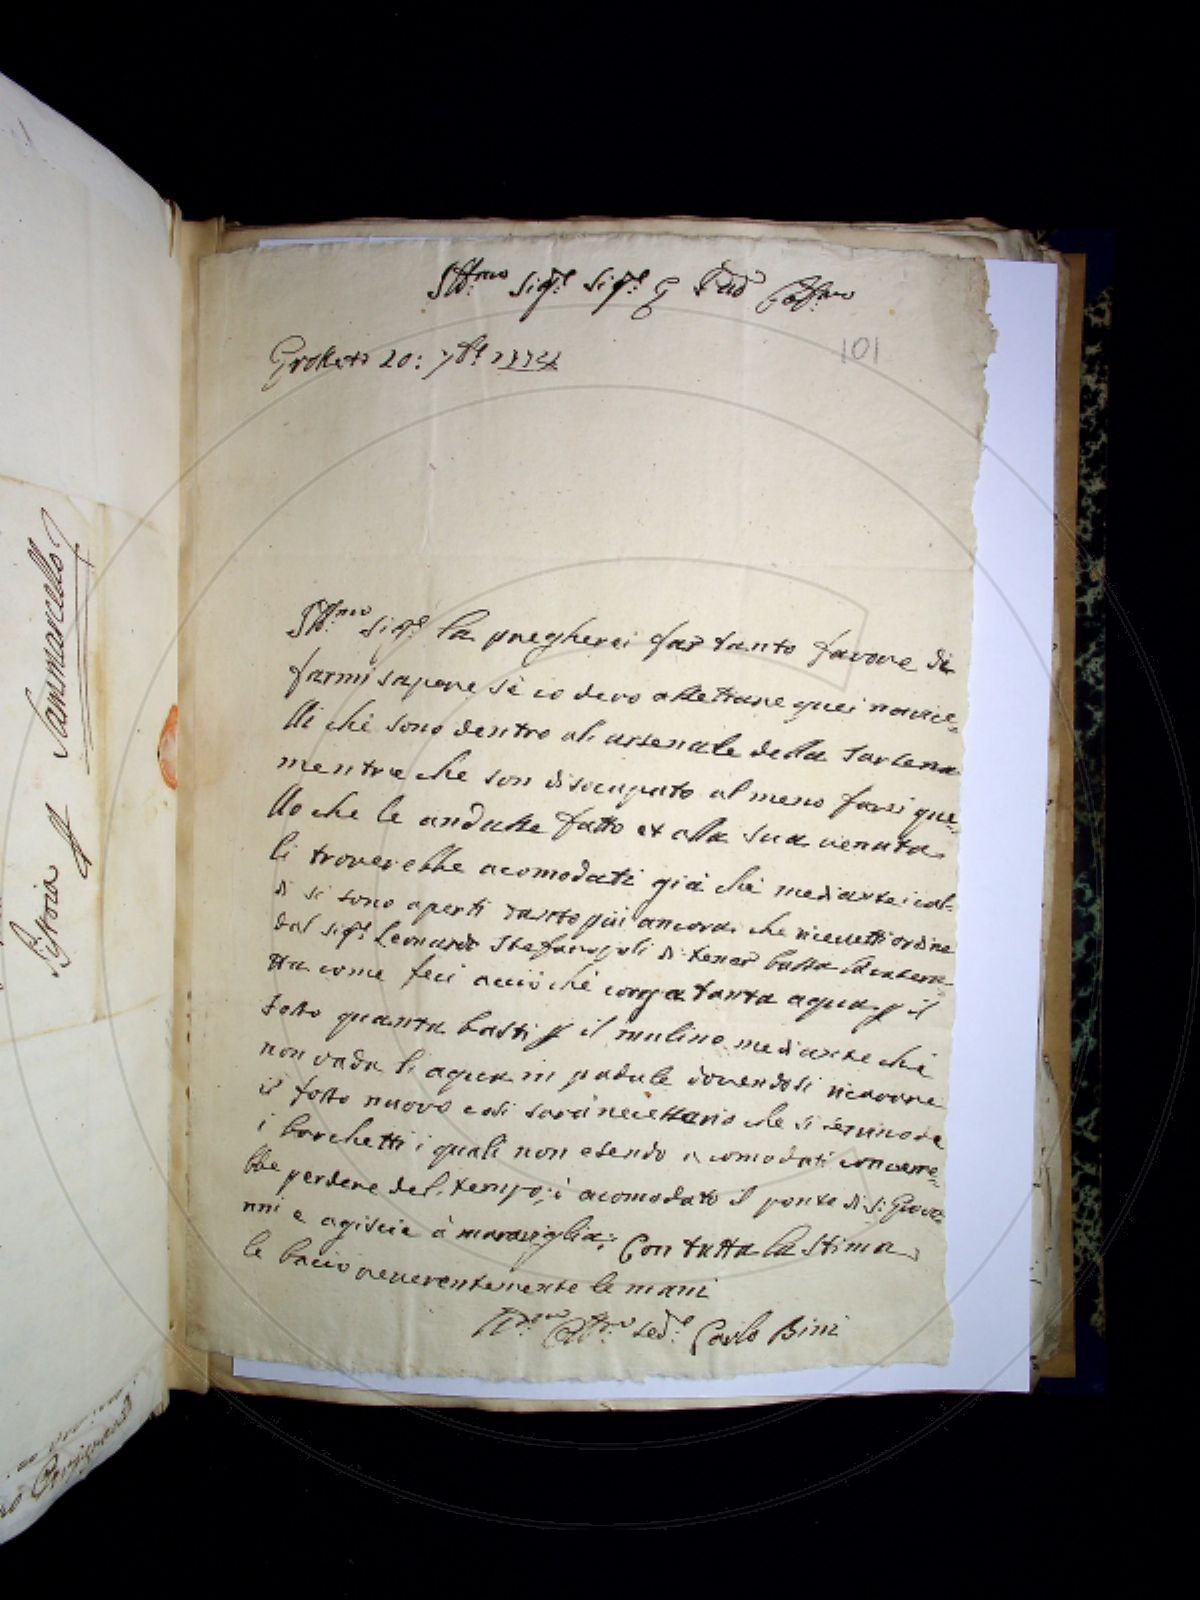 Ill:mo Sig:re Sig:re e Pad Col:mo
101
Groseto 20: 7bre 1774
Ill:mo Sig:re la pregherei far tanto favore di
farmi sapere se io devo allettare quei navice=
lli che sono dentro al arsenale della Tarcena
mentre che son disocupato al meno farei que=
llo che le andasse fatto et alla sua venuta
li troverebbe acomodati già che mediante i cal=
di si sono aperti tanto più ancora che ricevetti ordine
dal sig:re Leonardo Stefanopoli di tener bassa la catera
tta come feci acciò che corga tanta aqua p il
fosso quanta basti p il mulino mediante che
non vada li aqua in padule dovendosi ricavare
il fosso nuovo cosi sarà necessario che si
i barchetti i quali non esendo acomodati converre=
bbe perdere del tempo; è acomodato il ponte di S: Giova=
nni e agiscie à maraviglia; Con tutta la stima
le bacio reverentemente le mani
Carlo Bini
Pistoia
A Sammarcello